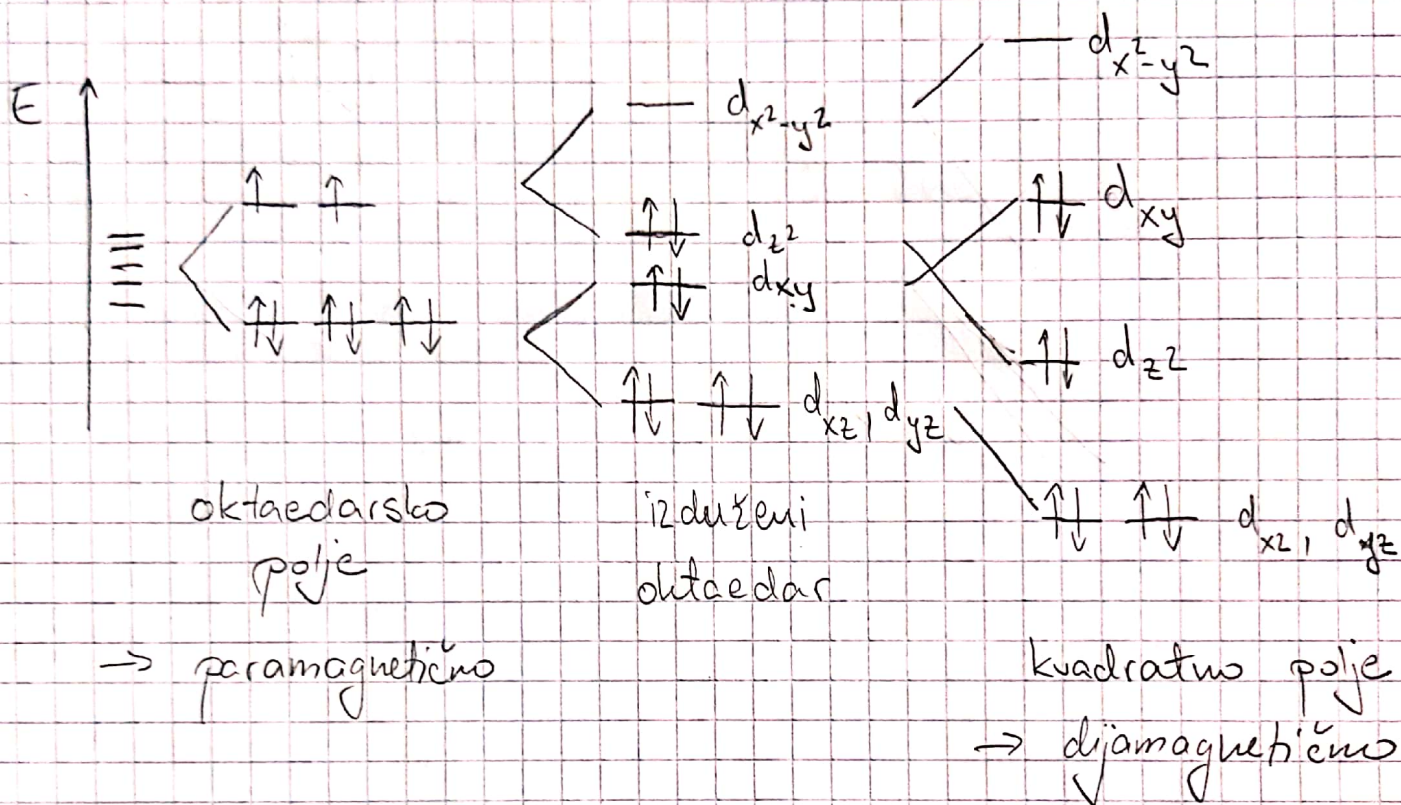 E
d x²-y²
d x²-y²
d z²
dxy
d xy
d z²
d xz, d yz
d xz, d yz
oktaedarsko
polje
→ paramagnetično
izduženi
oktaedar
kvadratno polje
→ dijamagnetično